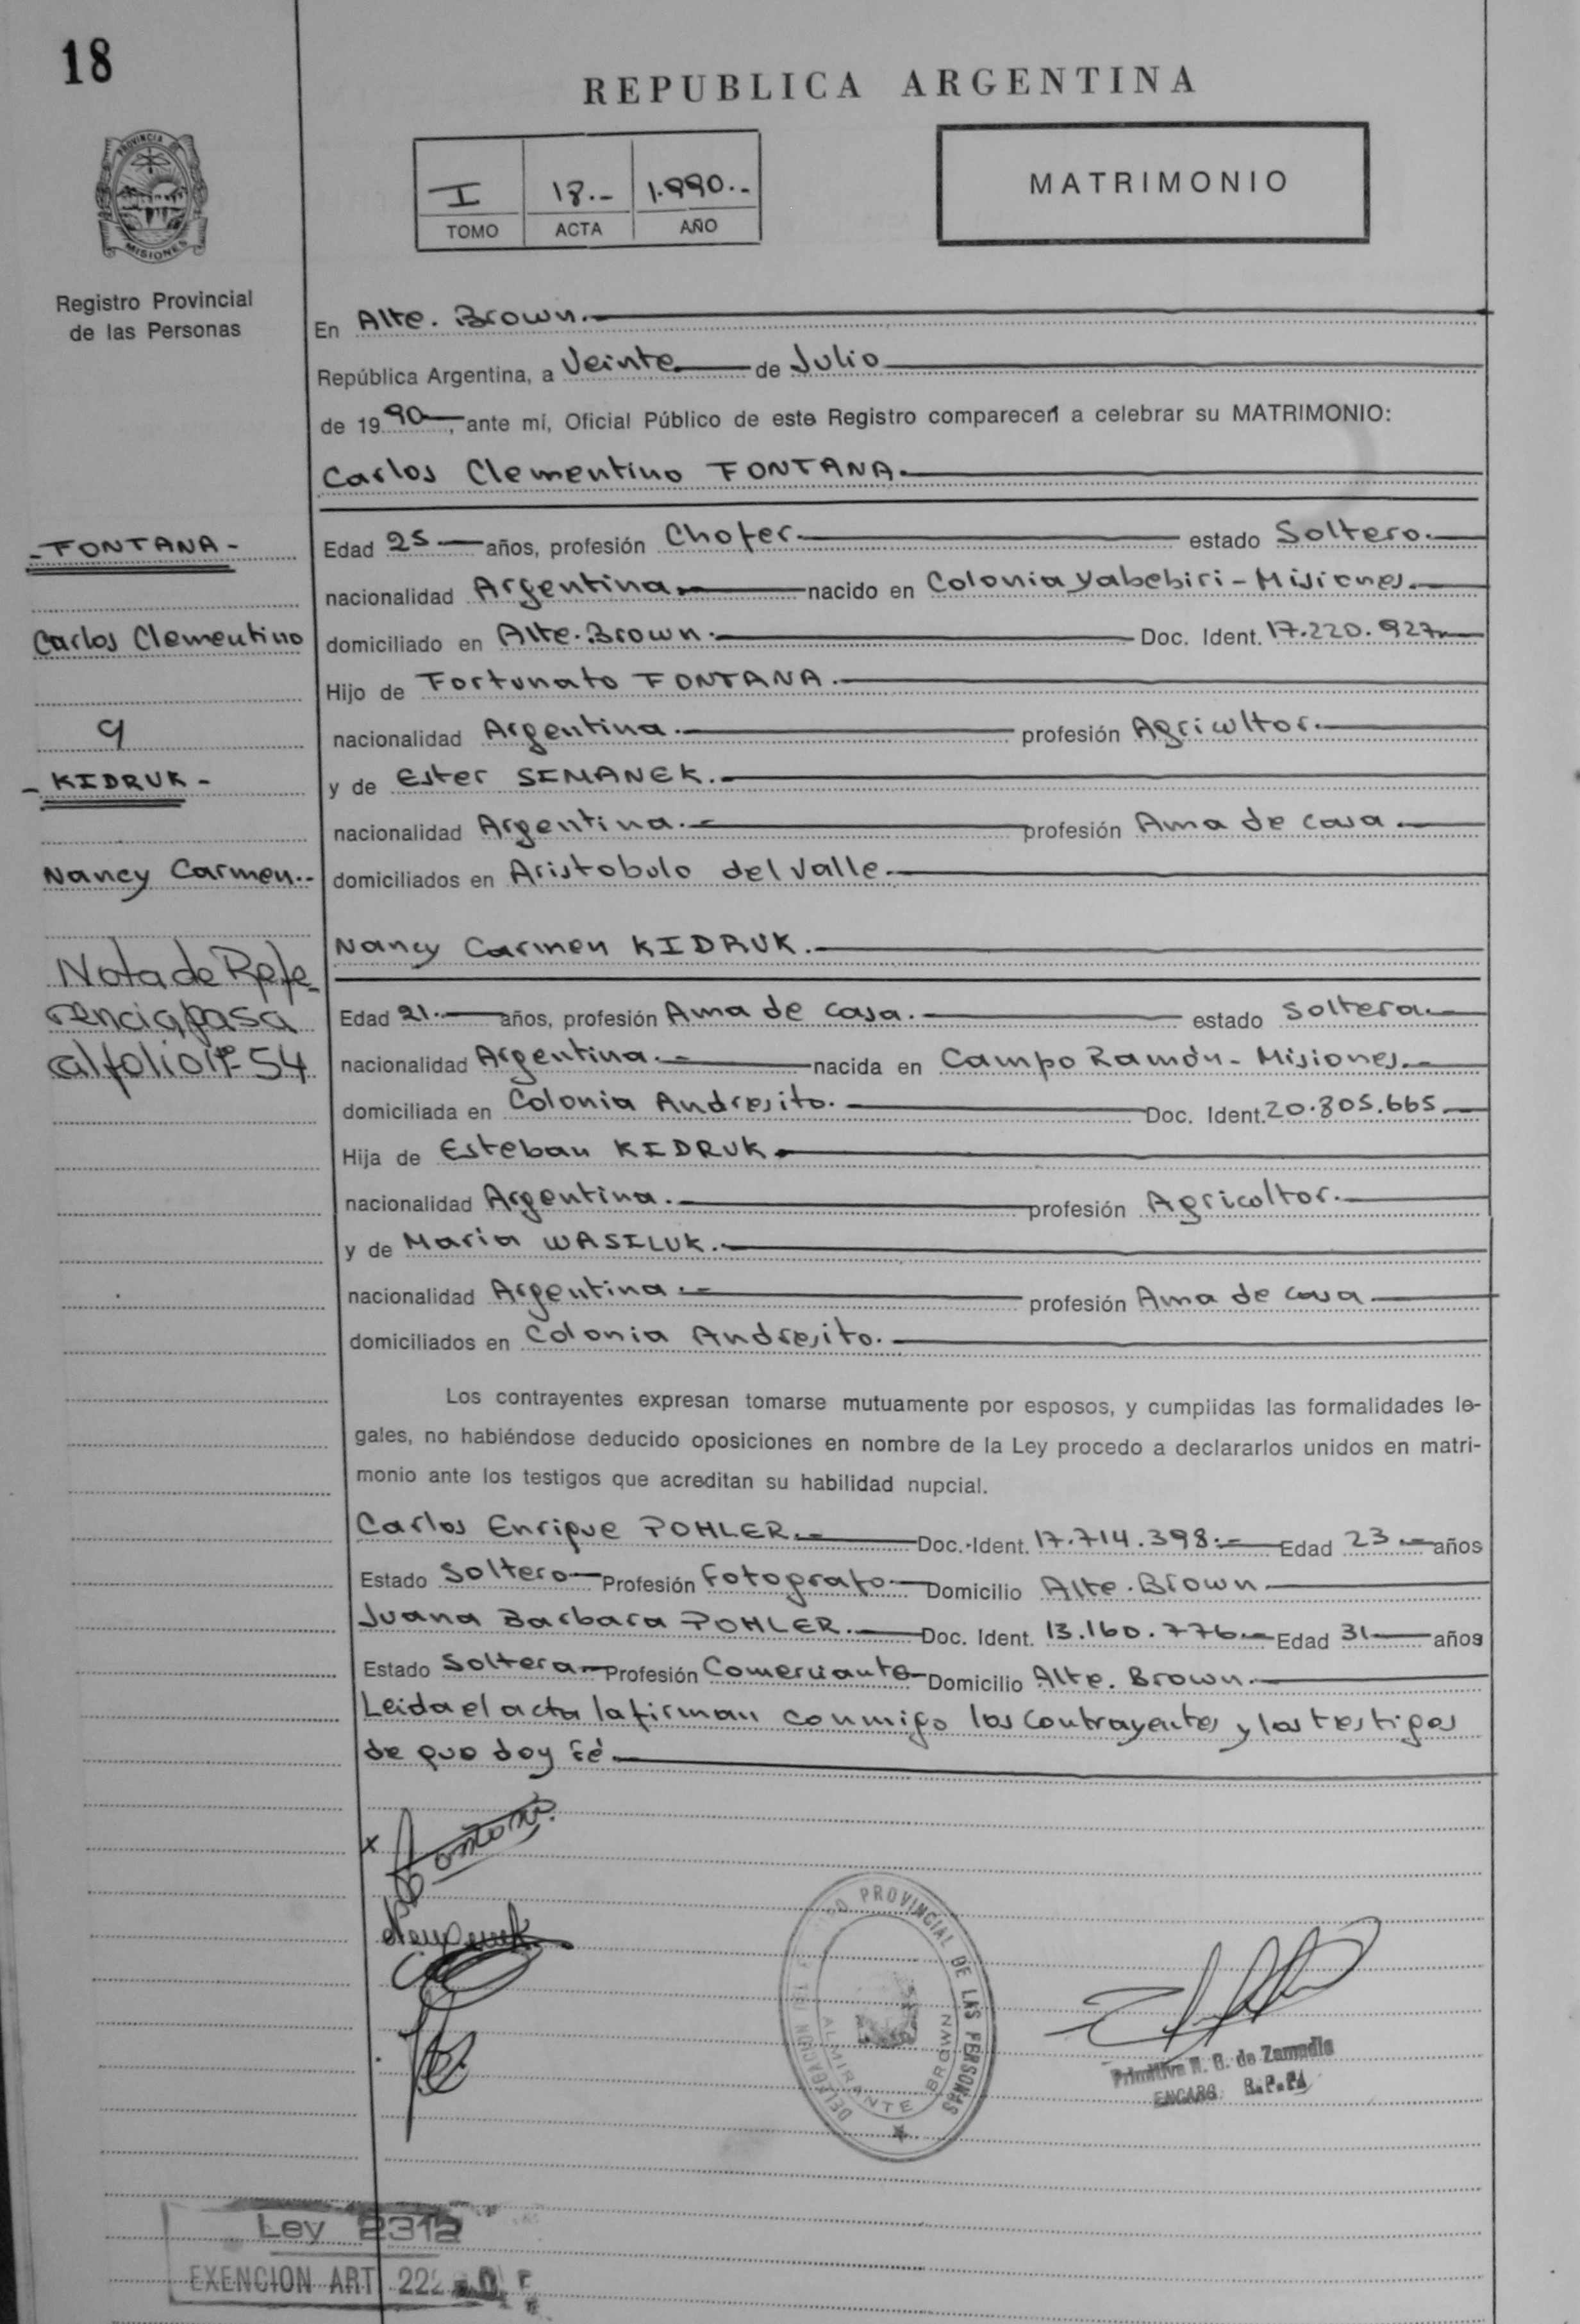 18
REPUBLICA ARGENTINA
PROVINCIA DE
MISIONES
Registro Provincial
de las Personas
I 18.- 1.990.-
TOMO ACTA AÑO
MATRIMONIO
En Alte. Brown.
República Argentina, a Veinte de Julio
de 1990, ante mí, Oficial Público de este Registro comparecen a celebrar su MATRIMONIO:
Carlos Clementino FONTANA.
- FONTANA -
Edad 25 años, profesión Chofer. estado Soltero.
nacionalidad Argentina. nacido en Colonia Yabebiri - Misiones.
Carlos Clementino
domiciliado en Alte. Brown. Doc. Ident. 17.220.927
Hijo de Fortunato FONTANA.
nacionalidad Argentina. profesión Agricultor.
- KIDRUK -
y de Ester SIMANEK.
nacionalidad Argentina. profesión Ama de casa.
Nancy Carmen.-
domiciliados en Aristobulo del Valle.
Nancy Carmen KIDRUK.
Nota de Refe-
rencia pasa
al folio nº 54
Edad 21. años, profesión Ama de casa. estado Soltera.
nacionalidad Argentina. nacida en Campo Ramón - Misiones.
domiciliada en Colonia Andresito. Doc. Ident. 20.805.665
Hija de Esteban KIDRUK
nacionalidad Argentina. profesión Agricoltor.
y de Maria WASILUK.
nacionalidad Argentina. profesión Ama de casa
domiciliados en Colonia Andresito.
Los contrayentes expresan tomarse mutuamente por esposos, y cumplidas las formalidades le-
gales, no habiéndose deducido oposiciones en nombre de la Ley procedo a declararlos unidos en matri-
monio ante los testigos que acreditan su habilidad nupcial.
Carlos Enrique POHLER. Doc. Ident. 17.714.398. Edad 23 años
Estado Soltero Profesión Fotografo Domicilio Alte. Brown
Juana Barbara POHLER. Doc. Ident. 13.160.776 Edad 31 años
Estado Soltera Profesión Comerciante Domicilio Alte. Brown.
Leida el acta la firman conmigo los contrayentes y los testigos
de que doy fé.
x Fontana
DELEGACION DEL PROVINCIAL DE LAS PERSONAS
ALMIRANTE BROWN
Primitiva N. G. de Zamudio
ENCARG. R.P.P.
Ley 2312
EXENCION ART 222